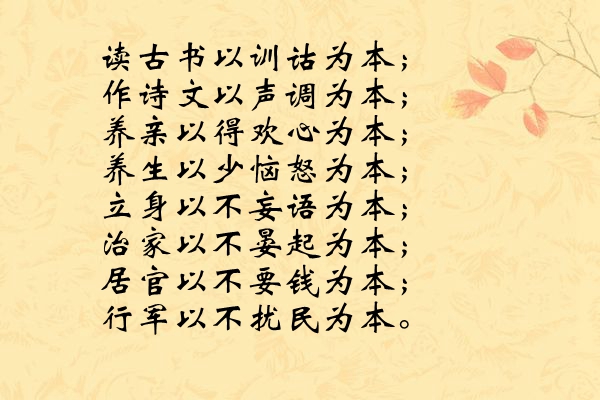 读古书以训诂为本；
作诗文以声调为本；
养亲以得欢心为本；
养生以少恼怒为本；
立身以不妄语为本；
治家以不晏起为本；
居官以不要钱为本；
行军以不扰民为本。